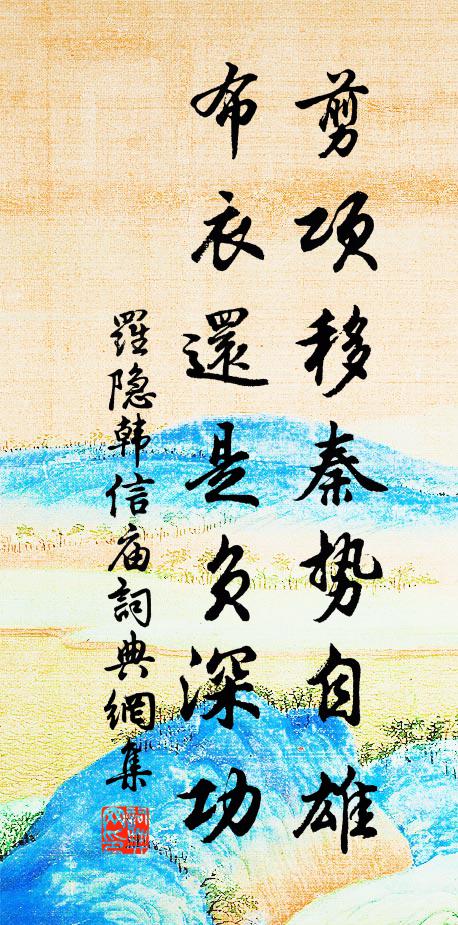 剪项移秦势自雄
布衣還是负深功
羅隐韩信庙詞典網集